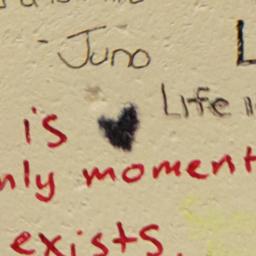 - Juno
Life
is
only moment
exists.